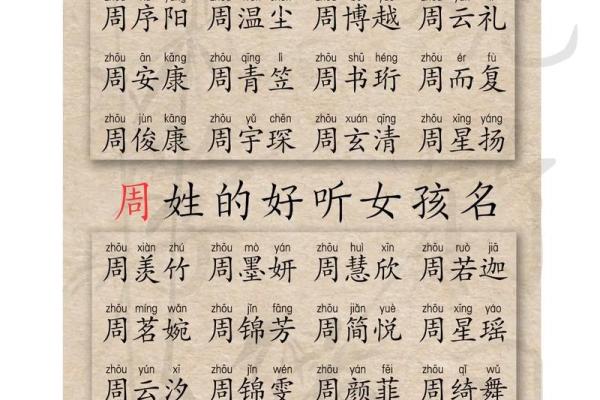 周序阳 周温尘 周博越 周云礼
zhōu ān kāng zhōu qīng lì zhōu shū héng zhōu ér fù
周安康 周青笠 周书珩 周而复
zhōu jùn kāng zhōu yǔ chēn zhōu xuán qīng zhōu xīng yáng
周俊康 周宇琛 周玄清 周星扬
周姓的好听女孩名
zhōu xiàn zhú zhōu mò yán zhōu huì xīn zhōu ruò jiā
周羡竹 周墨妍 周慧欣 周若迦
zhōu míng wǎn zhōu jǐn fāng zhōu jiǎn yuè zhōu xīng yáo
周茗婉 周锦芳 周简悦 周星瑶
zhōu yún xī zhōu jǐn wén zhōu yán fēi zhōu qǐ wǔ
周云汐 周锦雯 周颜菲 周绮舞